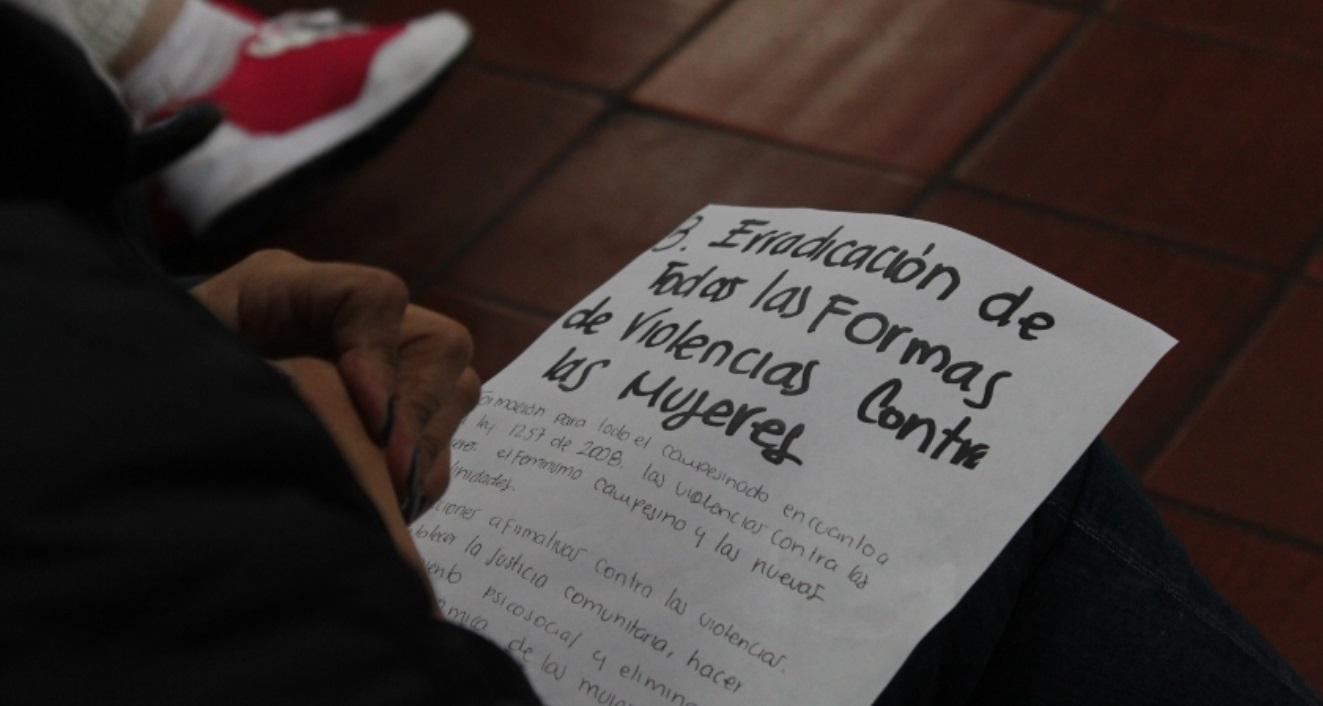 3. Erradicación de
Todas las Formas
de Violencias Contra
las Mujeres
formación para todo el campesinado en cuanto a
ley 1257 de 2008. las violencias contra las
el feminismo campesino y las nuevas
inidades.
ciones afirmativas contra las violencias.
blecer la justicia comunitaria, hacer
iento psicosocial y elimina
ómica de las mujer